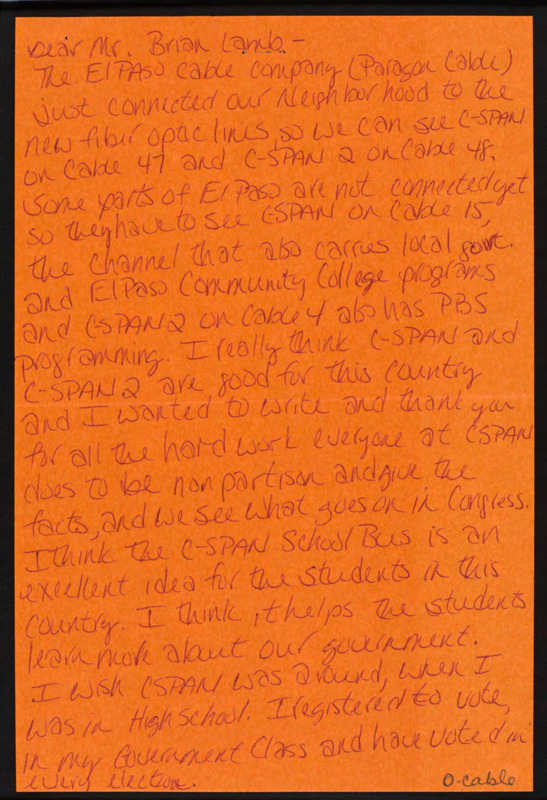 Dear Mr. Brian Lamb -
The El PASo Cable company (Paragon Cable)
just connected our Neighborhood to the
new fiber optic lines, so we can see C-SPAN
on Cable 47 and C-SPAN 2 on Cable 48.
Some parts of El Paso are not connected yet
so they have to see CSPAN on Cable 15,
the channel that also carries local govt.
and El Paso Community College programs
and C-SPAN 2 on Cable 4 also has PBS
programming. I really think C-SPAN and
C-SPAN 2 are good for this country
and I wanted to write and thank you
for all the hard work everyone at CSPAN
does to be non partison and give the
facts, and we see what goes on in Congress.
I think the C-SPAN School Bus is an
excellent idea for the students in this
country. I think it helps the students
learn more about our government.
I wish CSPAN was around, when I
was in High school. I registered to vote,
in my Government Class and have voted in
every election.
O-cable